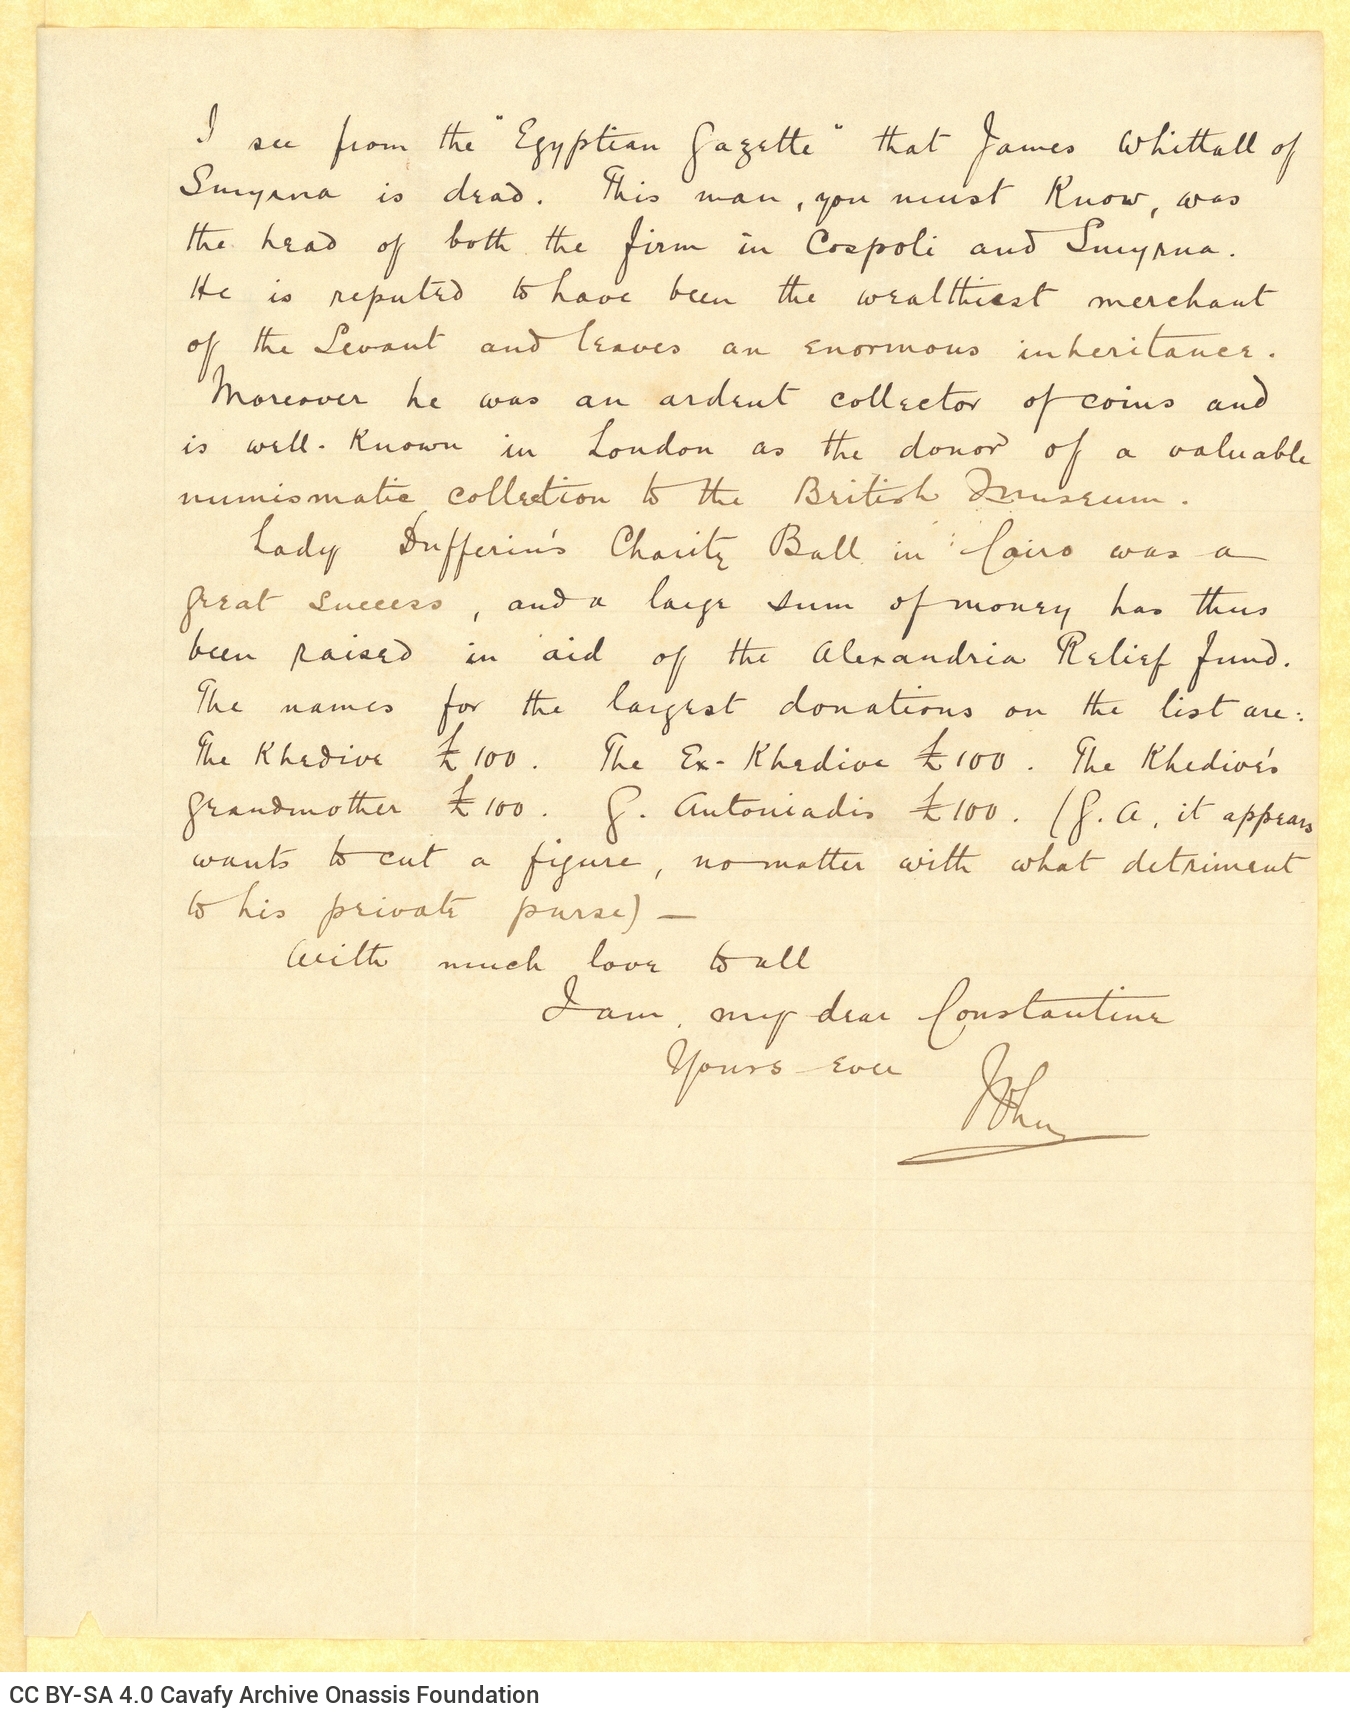 I see from the "Egyptian Gazette" that James Whittall of
Smyrna is dead. This man, you must know, was
the head of both the firm in Cospoli and Smyrna.
He is reputed to have been the wealthiest merchant
of the Levant and leaves an enormous inheritance.
Moreover he was an ardent collector of coins and
is well-known in London as the donor of a valuable
numismatic collection to the British Museum.
Lady Dufferin's Charity Ball in Cairo was a
great success, and a large sum of money has thus
been raised in aid of the Alexandria Relief Fund.
The names for the largest donations on the list are:
The Khedive £100. The Ex-Khedive £100. The Khedive's
grandmother £100. G. Antoniadis £100. (G. A, it appears
wants to cut a figure, no matter with what detriment
to his private purse) —
With much love to all
I am, my dear Constantine
Yours ever John
CC BY-SA 4.0 Cavafy Archive Onassis Foundation